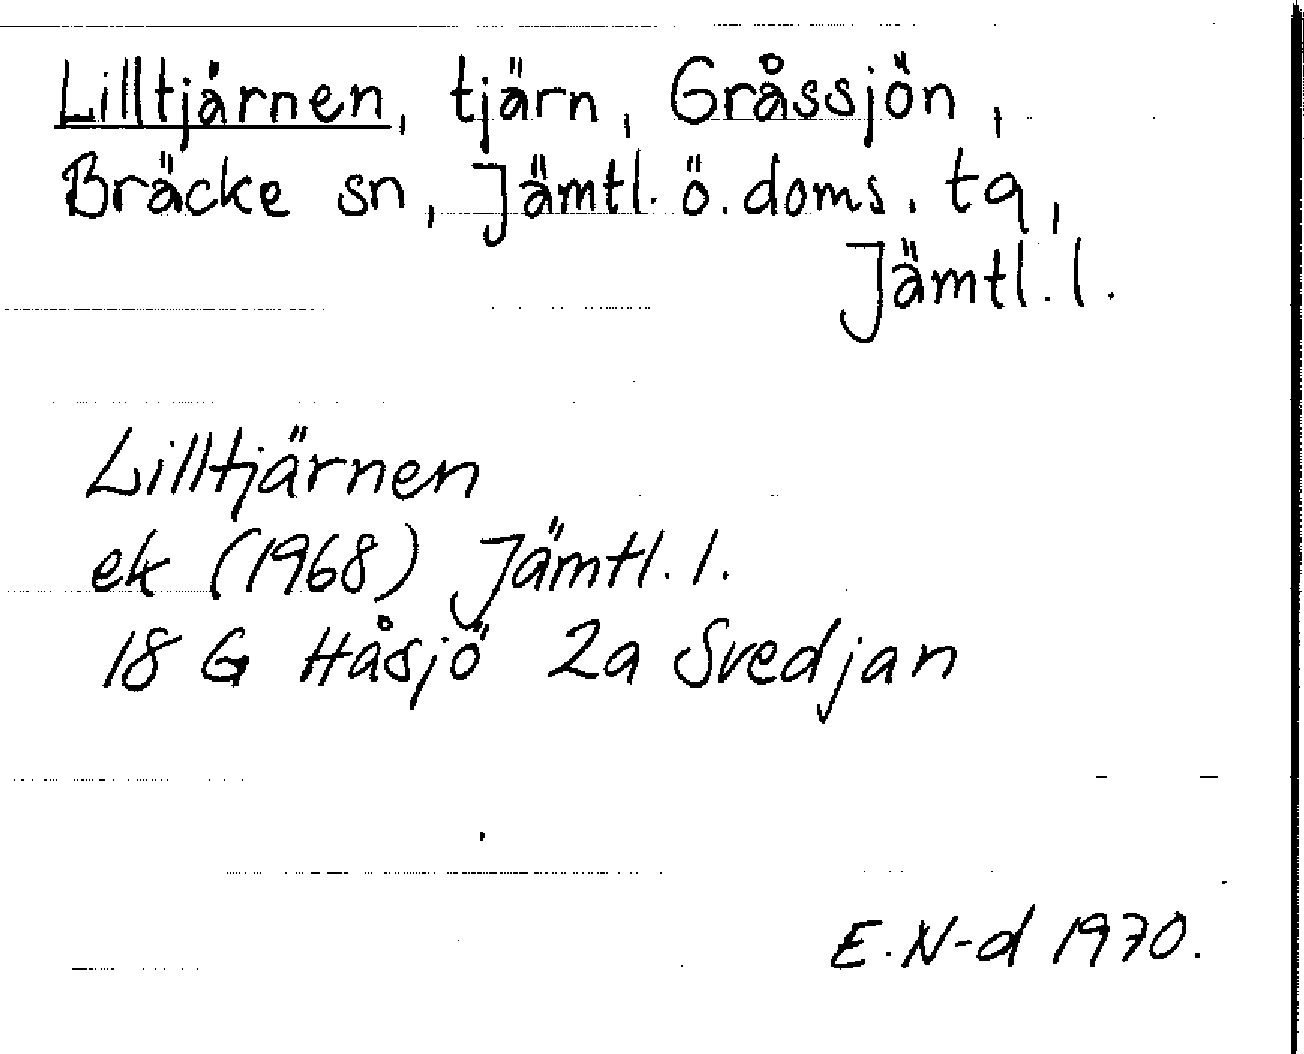 Lilltjärnen, tjärn, Gråssjön,
Bräcke sn, Jämtl. ö. doms. tg,
Jämtl. l.
Lilltjärnen
ek (1968) Jämtl. l.
18 G Håsjö 2a Svedjan
E. N-d 1970.